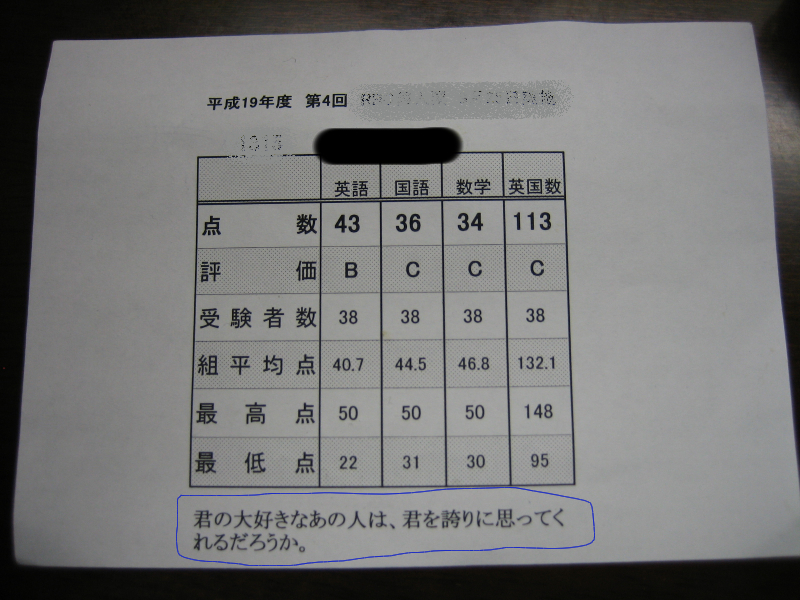 平成19年度 第4回
1015
英語 国語 数学 英国数
点数 43 36 34 113
評価 B C C C
受験者数 38 38 38 38
組平均点 40.7 44.5 46.8 132.1
最高点 50 50 50 148
最低点 22 31 30 95
君の大好きなあの人は、君を誇りに思ってく
れるだろうか。